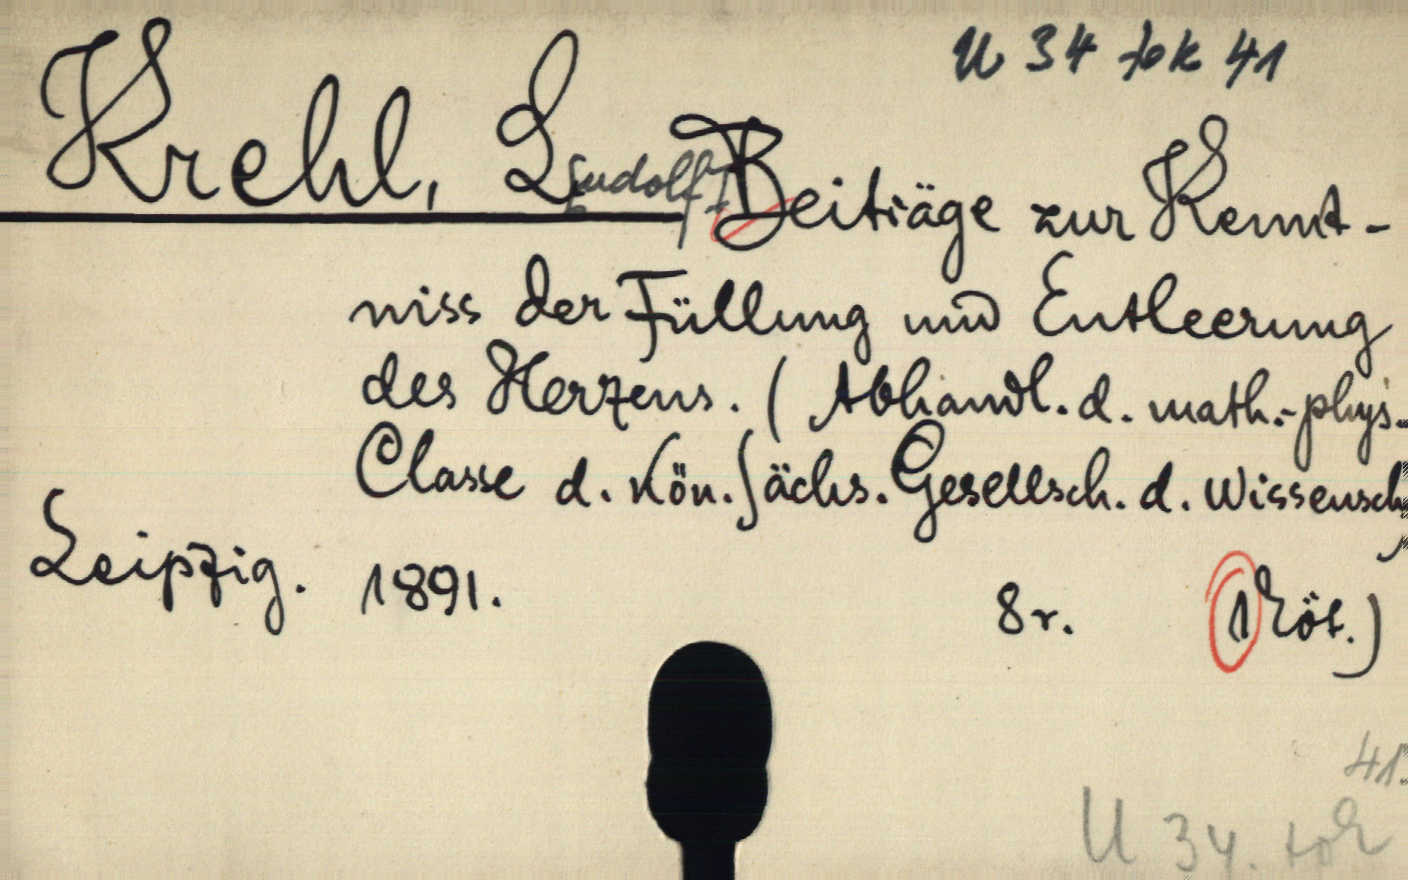 U 34 fok 41
Krehl, Ludolf, Beiträge zur Kennt-
niss der Füllung und Entleerung
des Herzens. (Abhandl. d. math.-phys.
Classe d. Kön. Sächs. Gesellsch. d. Wissensch.
Leipzig. 1891. 8r. 1 Röt.)
41.
U 34.